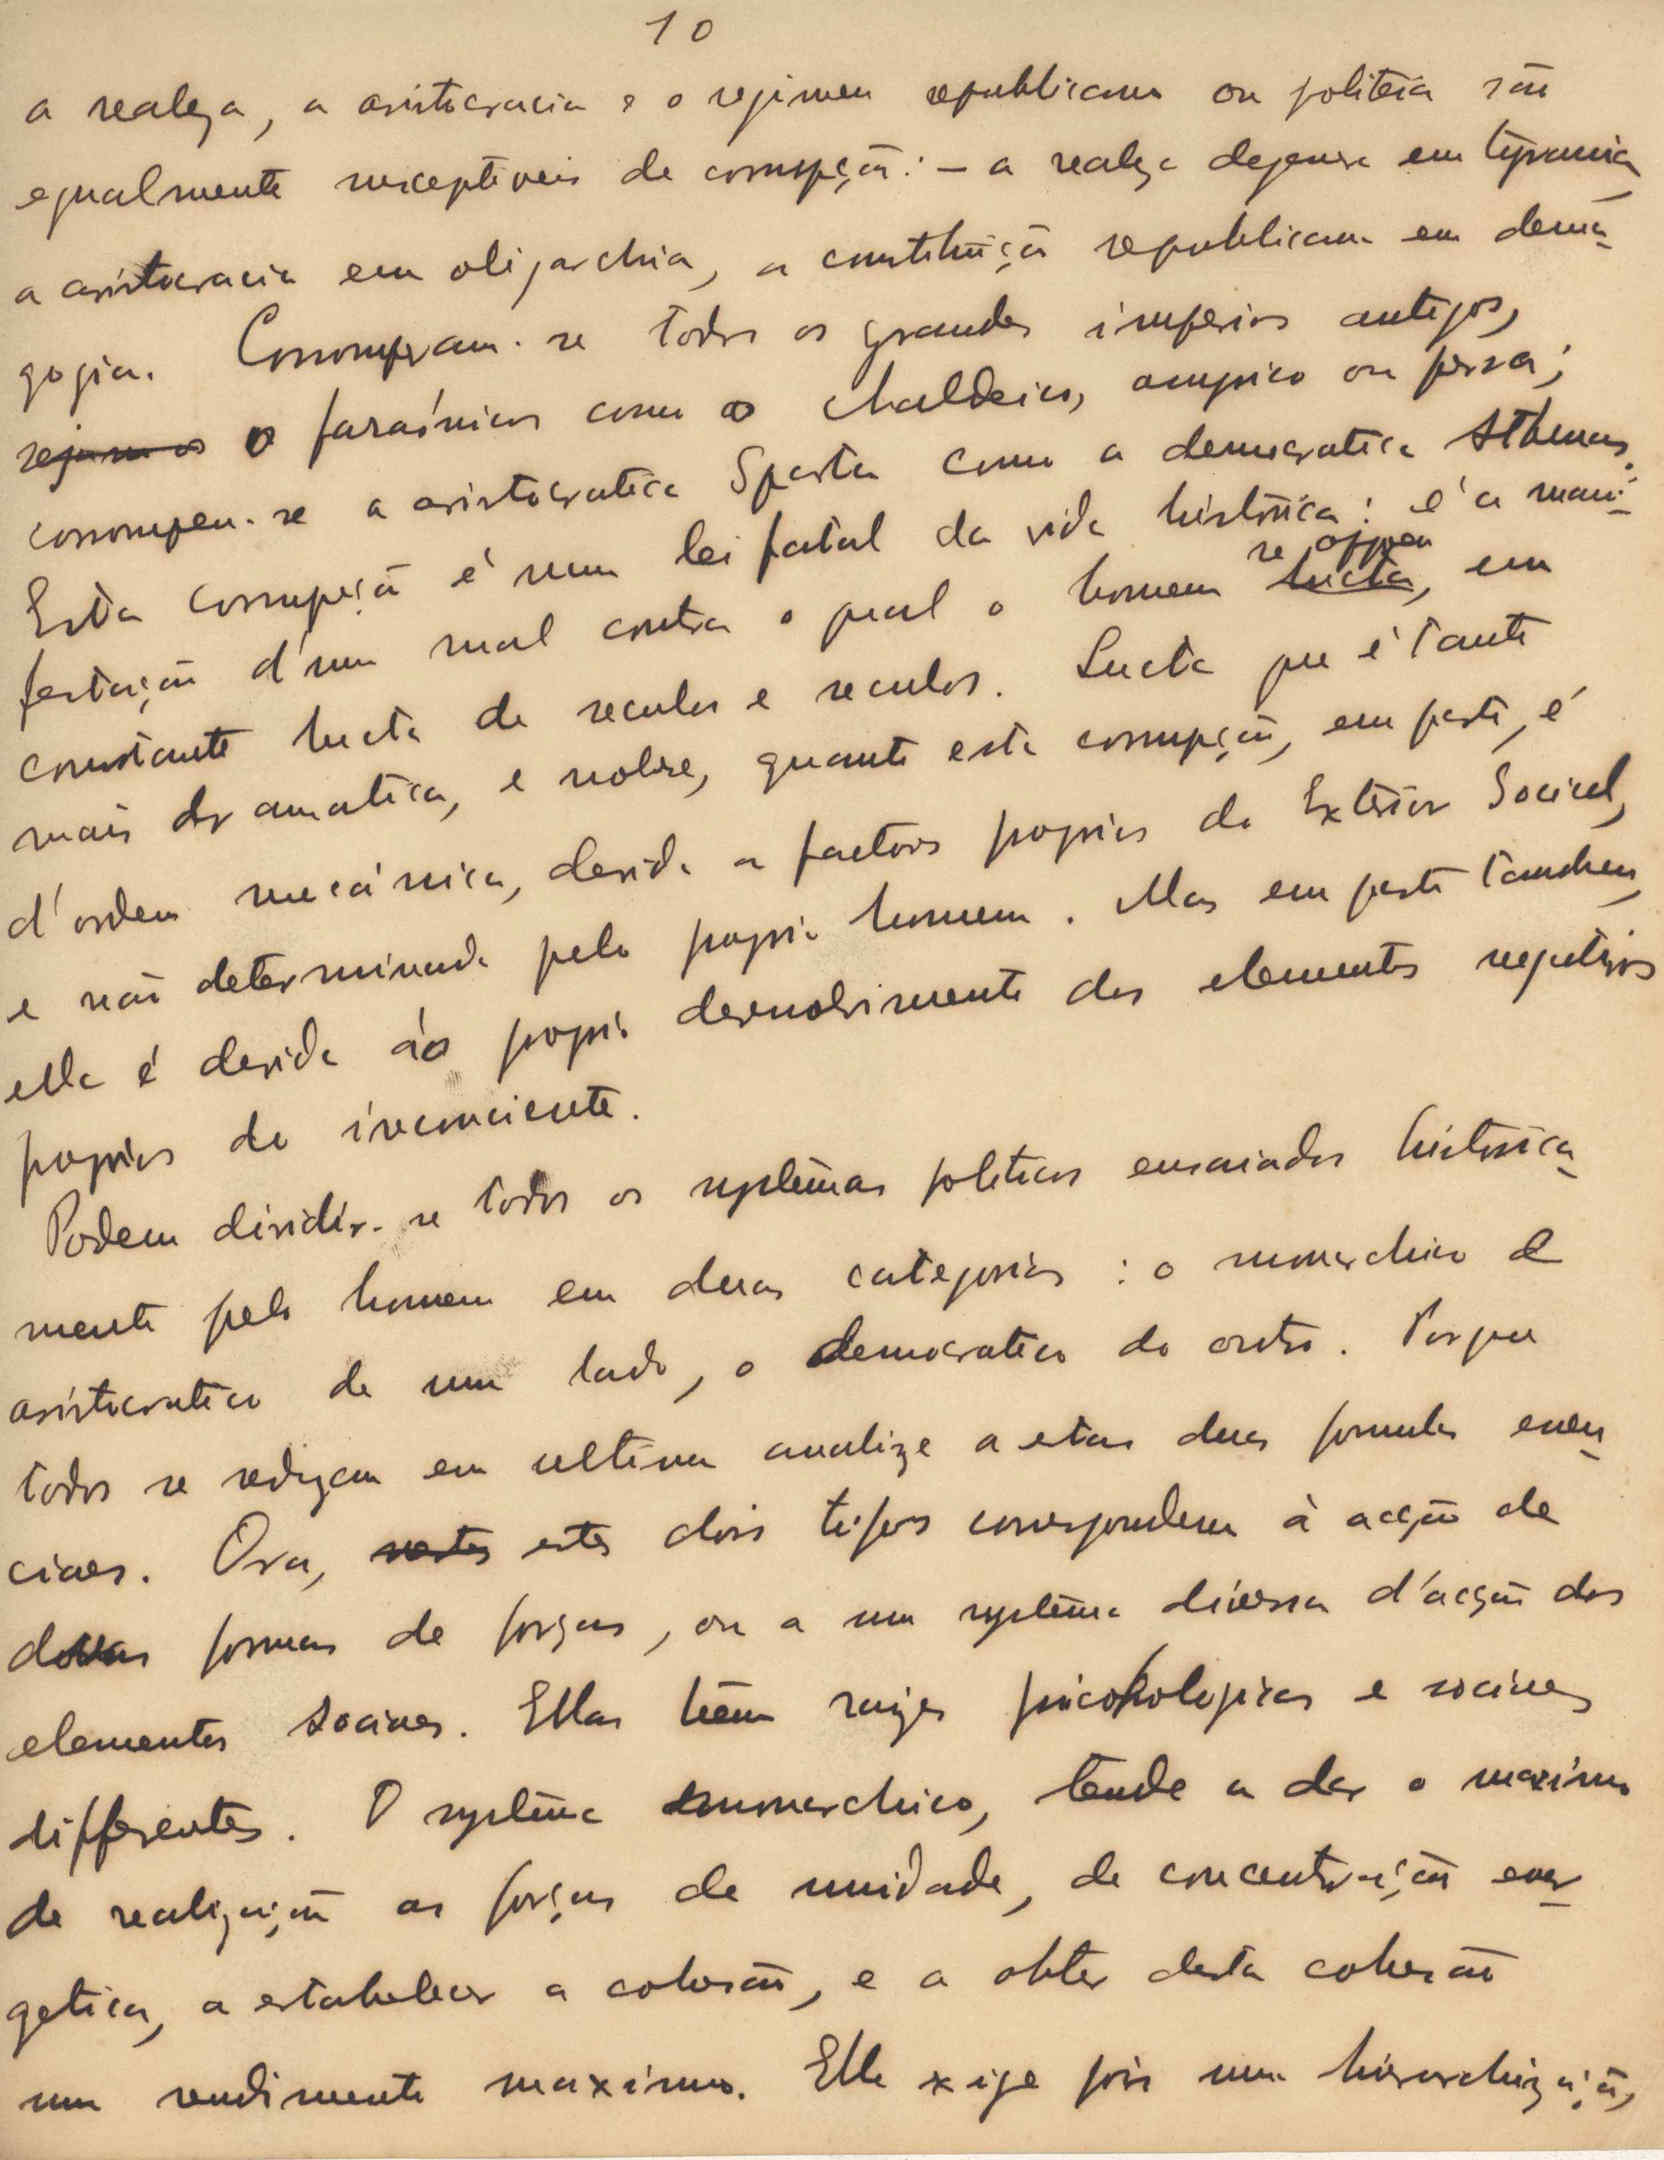 10
a realeza, a aristocracia e o regimen republicano ou politeia são
egualmente susceptiveis de corrupção: – a realeza degenera em tyrania,
a aristocracia em oligarchia, a constituição republicana em dema-
gogia. Corromperam-se todos os grandes imperios antigos,
os faraónicos como os chaldeicos, assyrico ou persa;
corrompeu-se a aristocratica Sparta como a democratica Athenas.
Esta corrupção é uma lei fatal da vida histórica: é a mani-
festação d'um mal contra o qual o homem se oppoz lucta, em
constante lucta de seculos e seculos. Lucta que é tanto
mais dramatica, e nobre, quanto esta corrupção, em parte, é
d'ordem mecánica, devida a factores proprios do Exterior Social,
e não determinada pelo proprio homem. Mas em parte tambem,
ella é devida ao proprio desenvolvimento dos elementos negativos
proprios do inconsciente.
Podem dividir-se todos os systemas politicos ensaiados historica-
mente pelo homem em duas categorias: o monarchico e
aristocratico de um lado, o democratico do outro. Porque
todos se reduzem em ultima analize a estas duas formulas essen-
ciaes. Ora, estes dois tipos correspondem à acção de
duas formas de forças, ou a um systema diverso d'acção dos
elementos sociaes. Ellas têem raizes psicologicas e sociaes
differentes. O systema monarchico, tende a dar o maximo
de realização as forças de unidade, de concentração ener-
getica, a estabelecer a cohesão, e a obter desta cohesão
um rendimento maximo. Elle exige pois uma hierarchização,